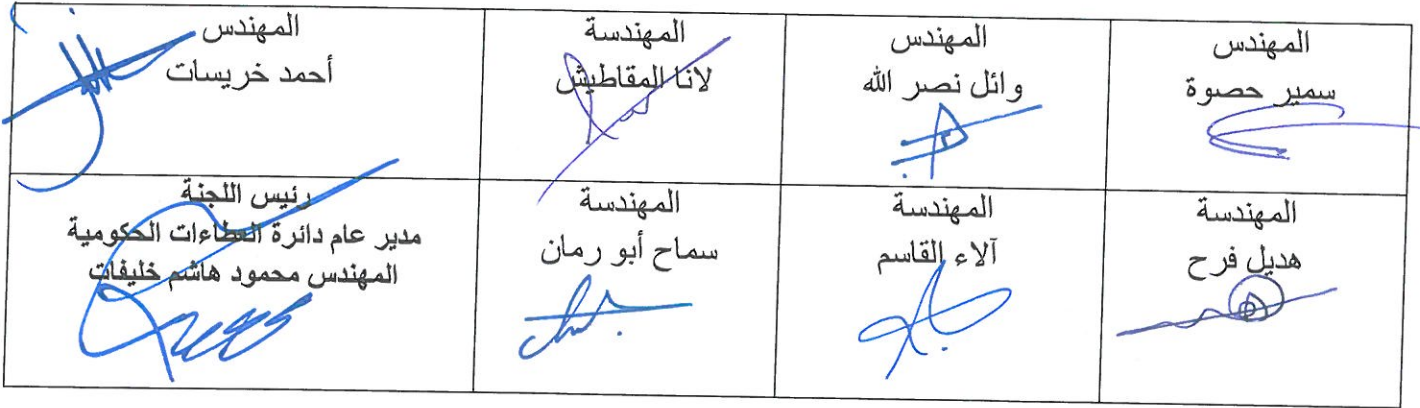 المهندس
سمير حصوة
المهندس
وائل نصر الله
المهندسة
لانا المقاطيش
المهندس
أحمد خريسات
المهندسة
هديل فرح
المهندسة
آلاء القاسم
المهندسة
سماح أبو رمان
رئيس اللجنة
مدير عام دائرة العطاءات الحكومية
المهندس محمود هاشم خليفات